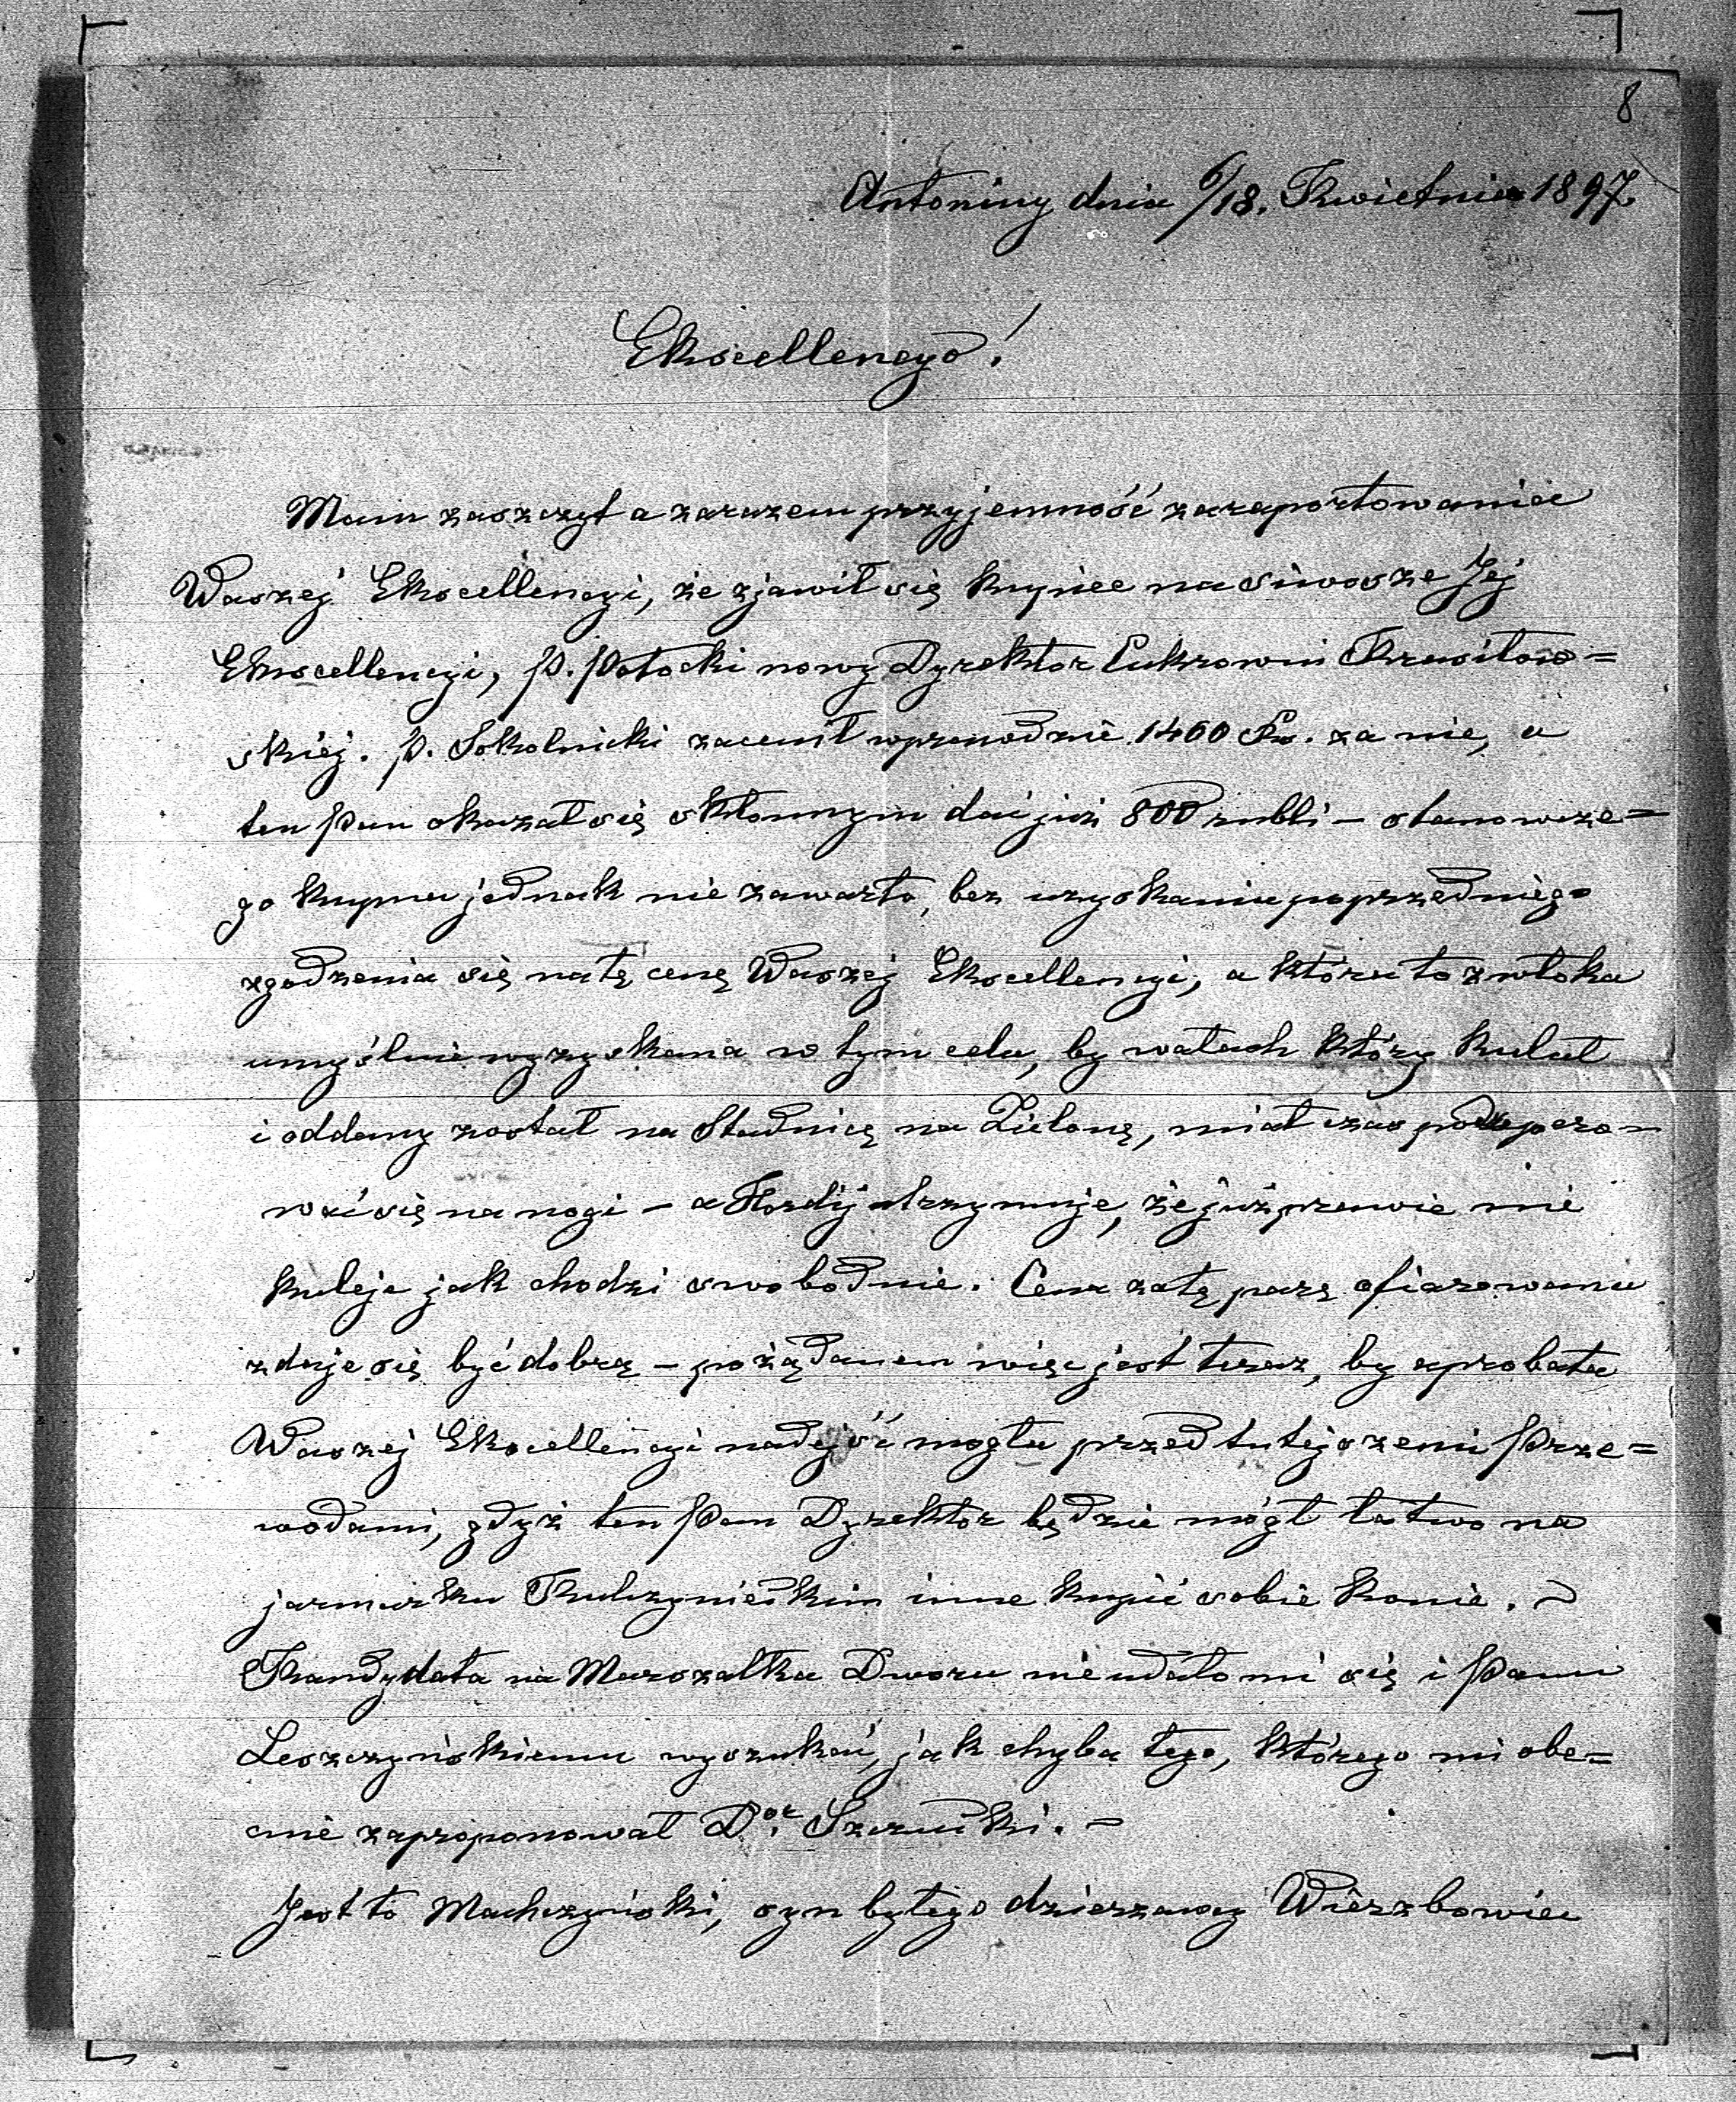 8
Antoniny dnia 6/18. Kwietnia 1897.
Ekscellencyo!
Mam zaszczyt a zarazem przyjemność zaraportowania
Waszej Ekscellencyi, że zjawił się kupiec na siwosze Jej
Ekscellencyi, p. Potocki nowy Dyrektor Cukrowni Krasiłow=
skiej. p. Sokolnicki zacenił wprawdzie 1400 Rs. za nie, a
ten Pan okazał się skłonnym dać już 800 rubli – stanowcze=
go kupna jednak nie zawarto, bez uzyskania poprzedniego
zgodzenia się na tę cenę Waszej Ekscellencyi, a która to zwłoka
umyślnie wyzyskana w tym celu, by wałach który kulał
i oddany został na Stadnicę na Zieloną, miał czas
wać się na nogi – a utrzymuje, że już prawie nie
kuleje jak chodzi swobodnie. Cena za tę parę ofiarowana
zdaje się być dobrą – pożądanem więc jest teraz, by aprobata
Waszej Ekscellencyi nadejść mogła przed tutejszemi Prze=
wodami, gdyż ten Pan Dyrektor będzie mógł łatwo na
jarmarku Kulczynieckim inne kupić sobie konie. –
Kandydata na Marszałka Dworu nie udało mi się i Panu
Leszczyńskiemu wyszukać, jak chyba tego, którego mi obe=
cnie zaproponował Dor.
Jest to Machczyński, syn byłego dzierzawcy Wierzbowiec